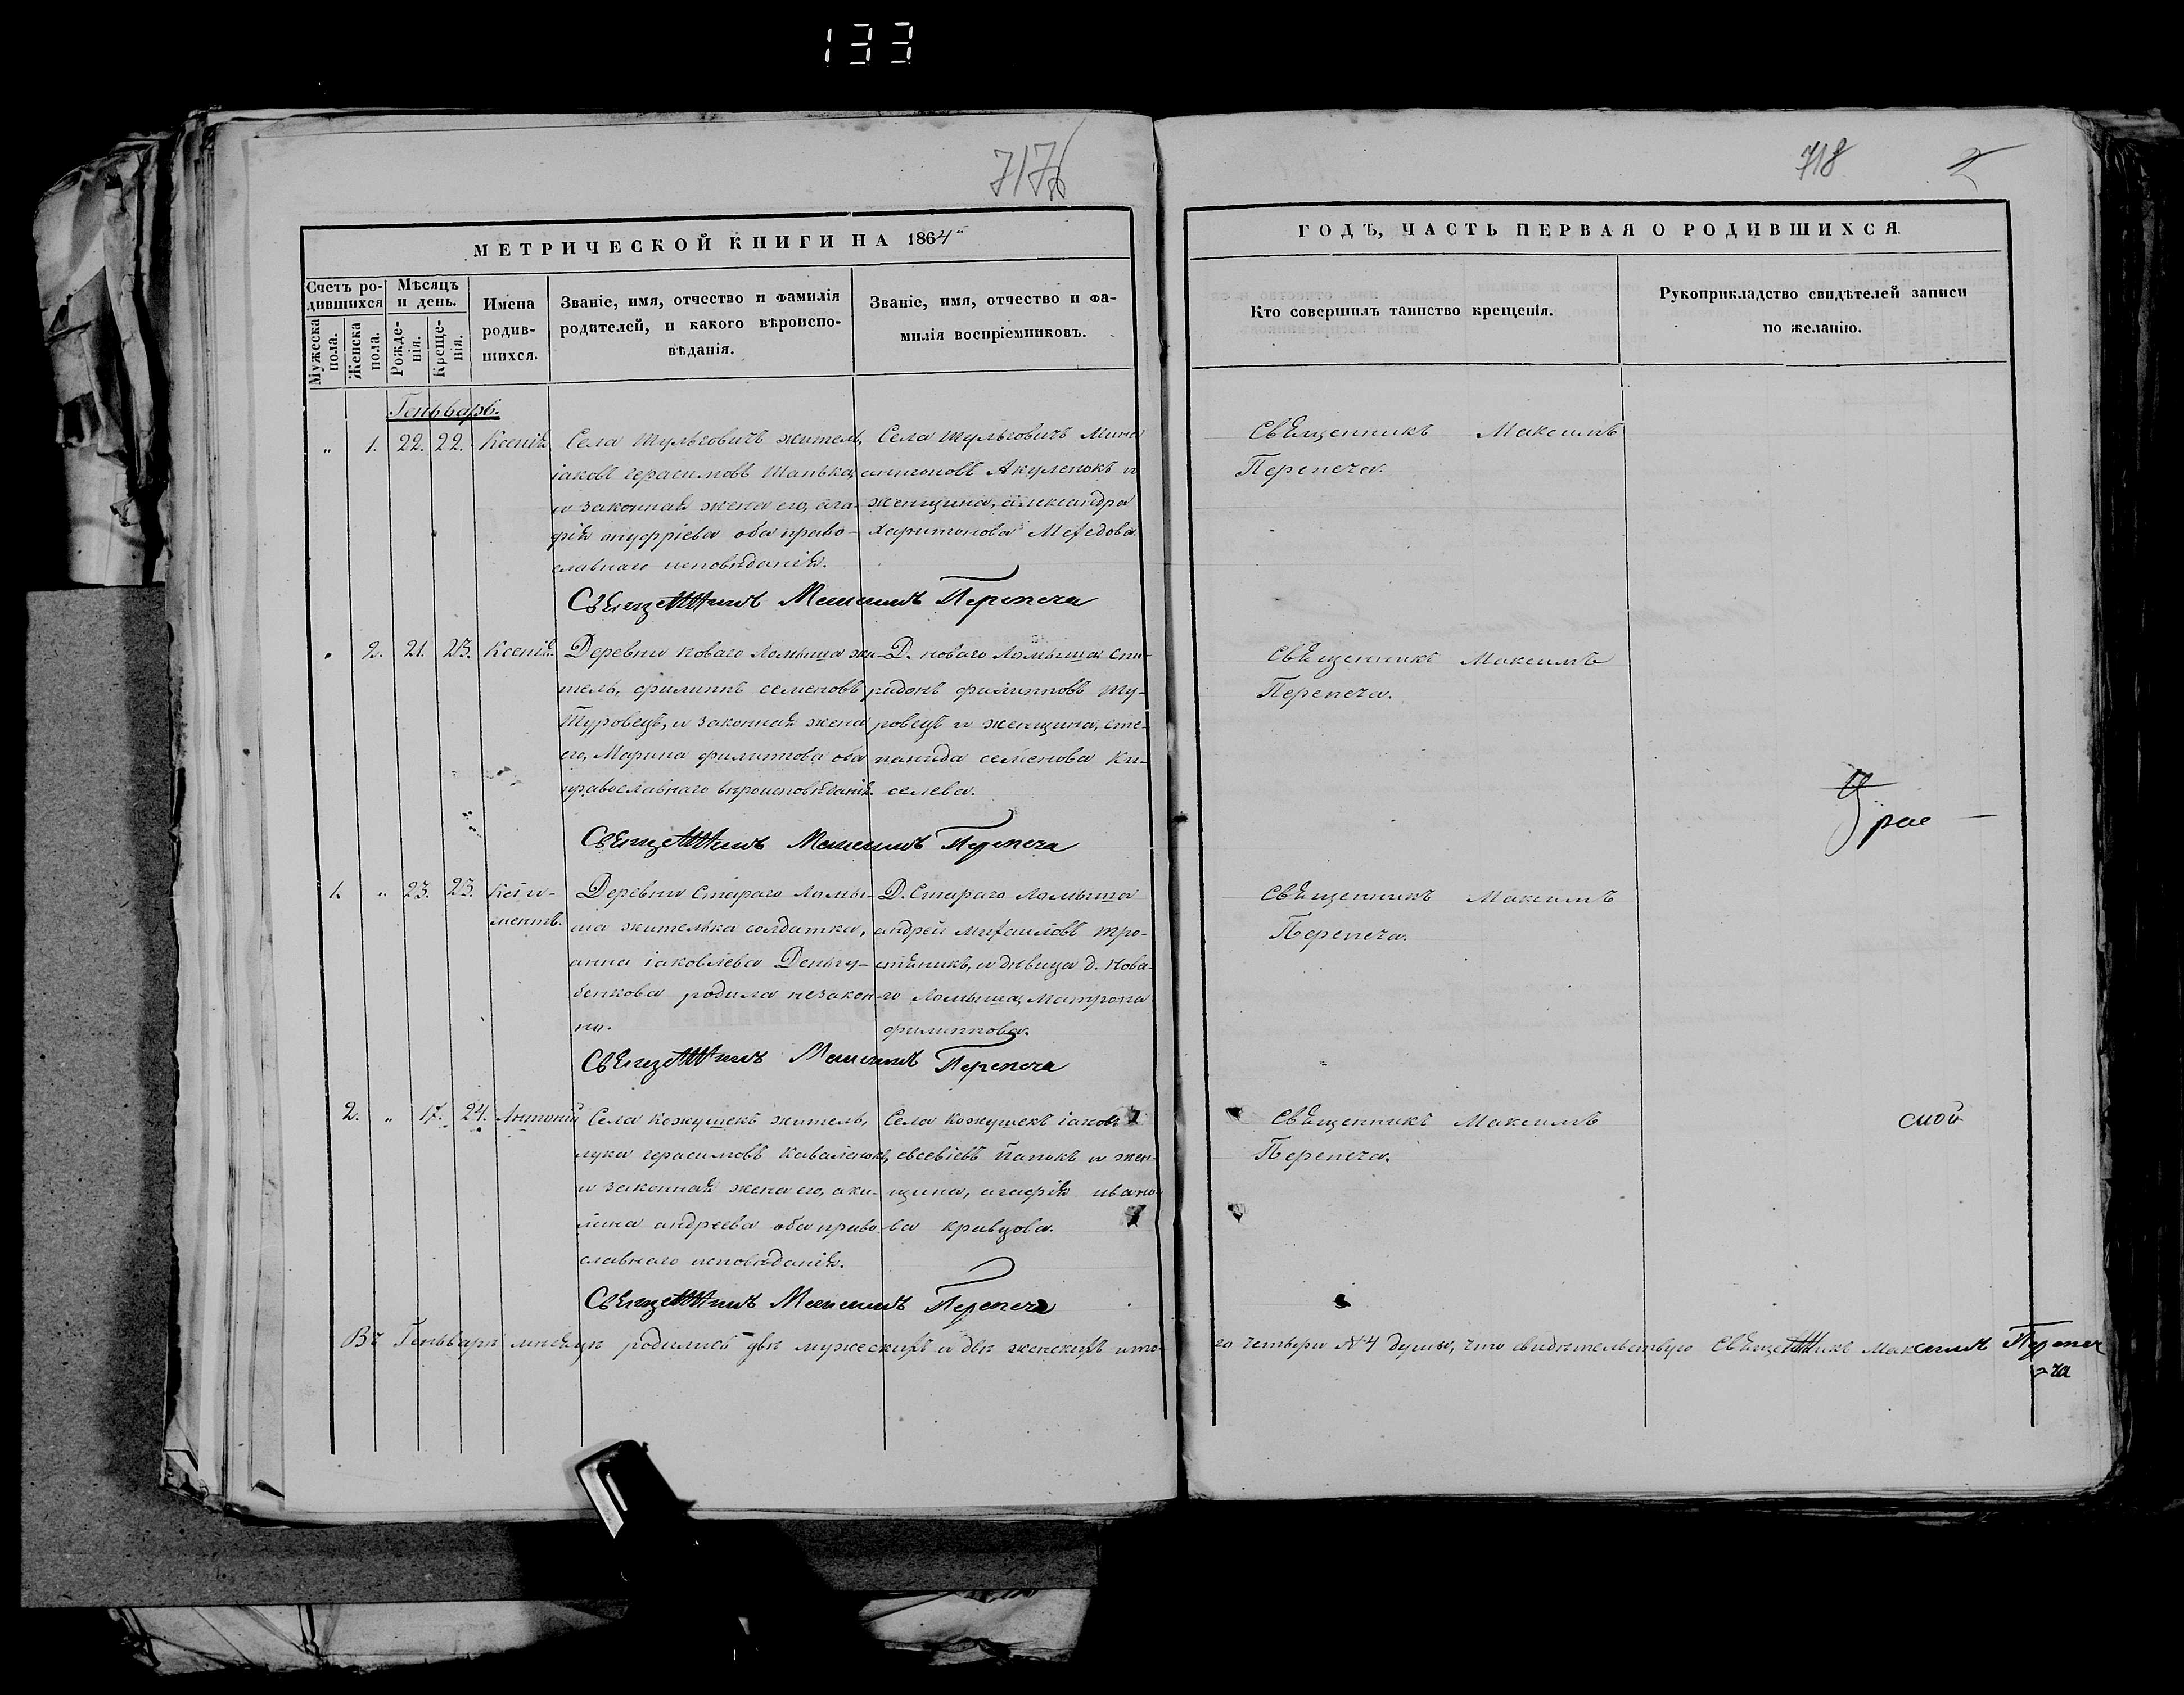 133
717
718
МЕТРИЧЕСКОЙ КНИГИ НА 1864
ГОДЪ, ЧАСТЬ ПЕРВАЯ О РОДИВШИХСЯ.
Счетъ ро-
дившихся
Мужеска
пола.
Женска
пола.
Мѣсяцъ
и день.
Рожде-
нія.
Креще-
нія.
Имена
родив-
шихся.
Званіе, имя, отчество и фамилія
родителей, и какого вѣроиспо-
вѣданія.
Званіе, имя, отчество и фа-
милія воспріемниковъ.
Кто совершилъ таинство крещенія.
Рукоприкладство свидѣтелей записи
по желанію.
Генварь.
„ 1. 22. 22. Ксенія
Села Тульговичъ житель,
іаковъ герасимовъ Шапька,
и законная жена его, ага-
фія
оба право-
славнаго исповѣданія.
Села Тульговичъ Мина
антоновъ Акуленокъ и
женщина, александра
харитонова Мехедова.
Священникъ Максимъ
Перепеча.
Священникъ Максимъ Перепеча
„ 2. 21. 23. Ксенія.
Деревни новаго Ломыша жи-
тель, филиппъ семеновъ
Туровецъ, и законная жена
его, Марина филиппова оба
православнаго вѣроисповѣданія.
Д. новаго Ломыша спи-
ридонъ филипповъ Ту-
ровецъ и женщина, сте-
панида семенова Ки-
селева.
Священникъ Максимъ
Перепеча.
Священникъ Максимъ Перепеча
1. „ 23. 23. Кли-
ментъ.
Деревни Стараго Ломы-
ша жителька солдатка,
анна іаковлева Деньгу-
бенкова родила незакон-
но.
Д. Стараго Ломыша
андрей михаиловъ Тро-
стяникъ, и дѣвица д. Нова-
го Ломыша, Матрона
филиппова.
Священникъ Максимъ
Перепеча.
Священникъ Максимъ Перепеча
2. „ 17. 24. Антоній
Села Кожушекъ житель,
лука герасимовъ Коваленокъ,
и законная жена его, аку-
лина андреева оба право-
славнаго исповѣданія.
Села Кожушекъ іаковъ
евсевіевъ Папокъ и жен-
щина, агафія ивано-
ва Кравцова.
Священникъ Максимъ
Перепеча.
Священникъ Максимъ Перепеча
Въ Генварѣ мѣсяцѣ родилось двѣ мужескихъ и двѣ женскихъ ито-
го четыри №4 души, что свидѣтельствую Священникъ Максимъ Перепе-
ча